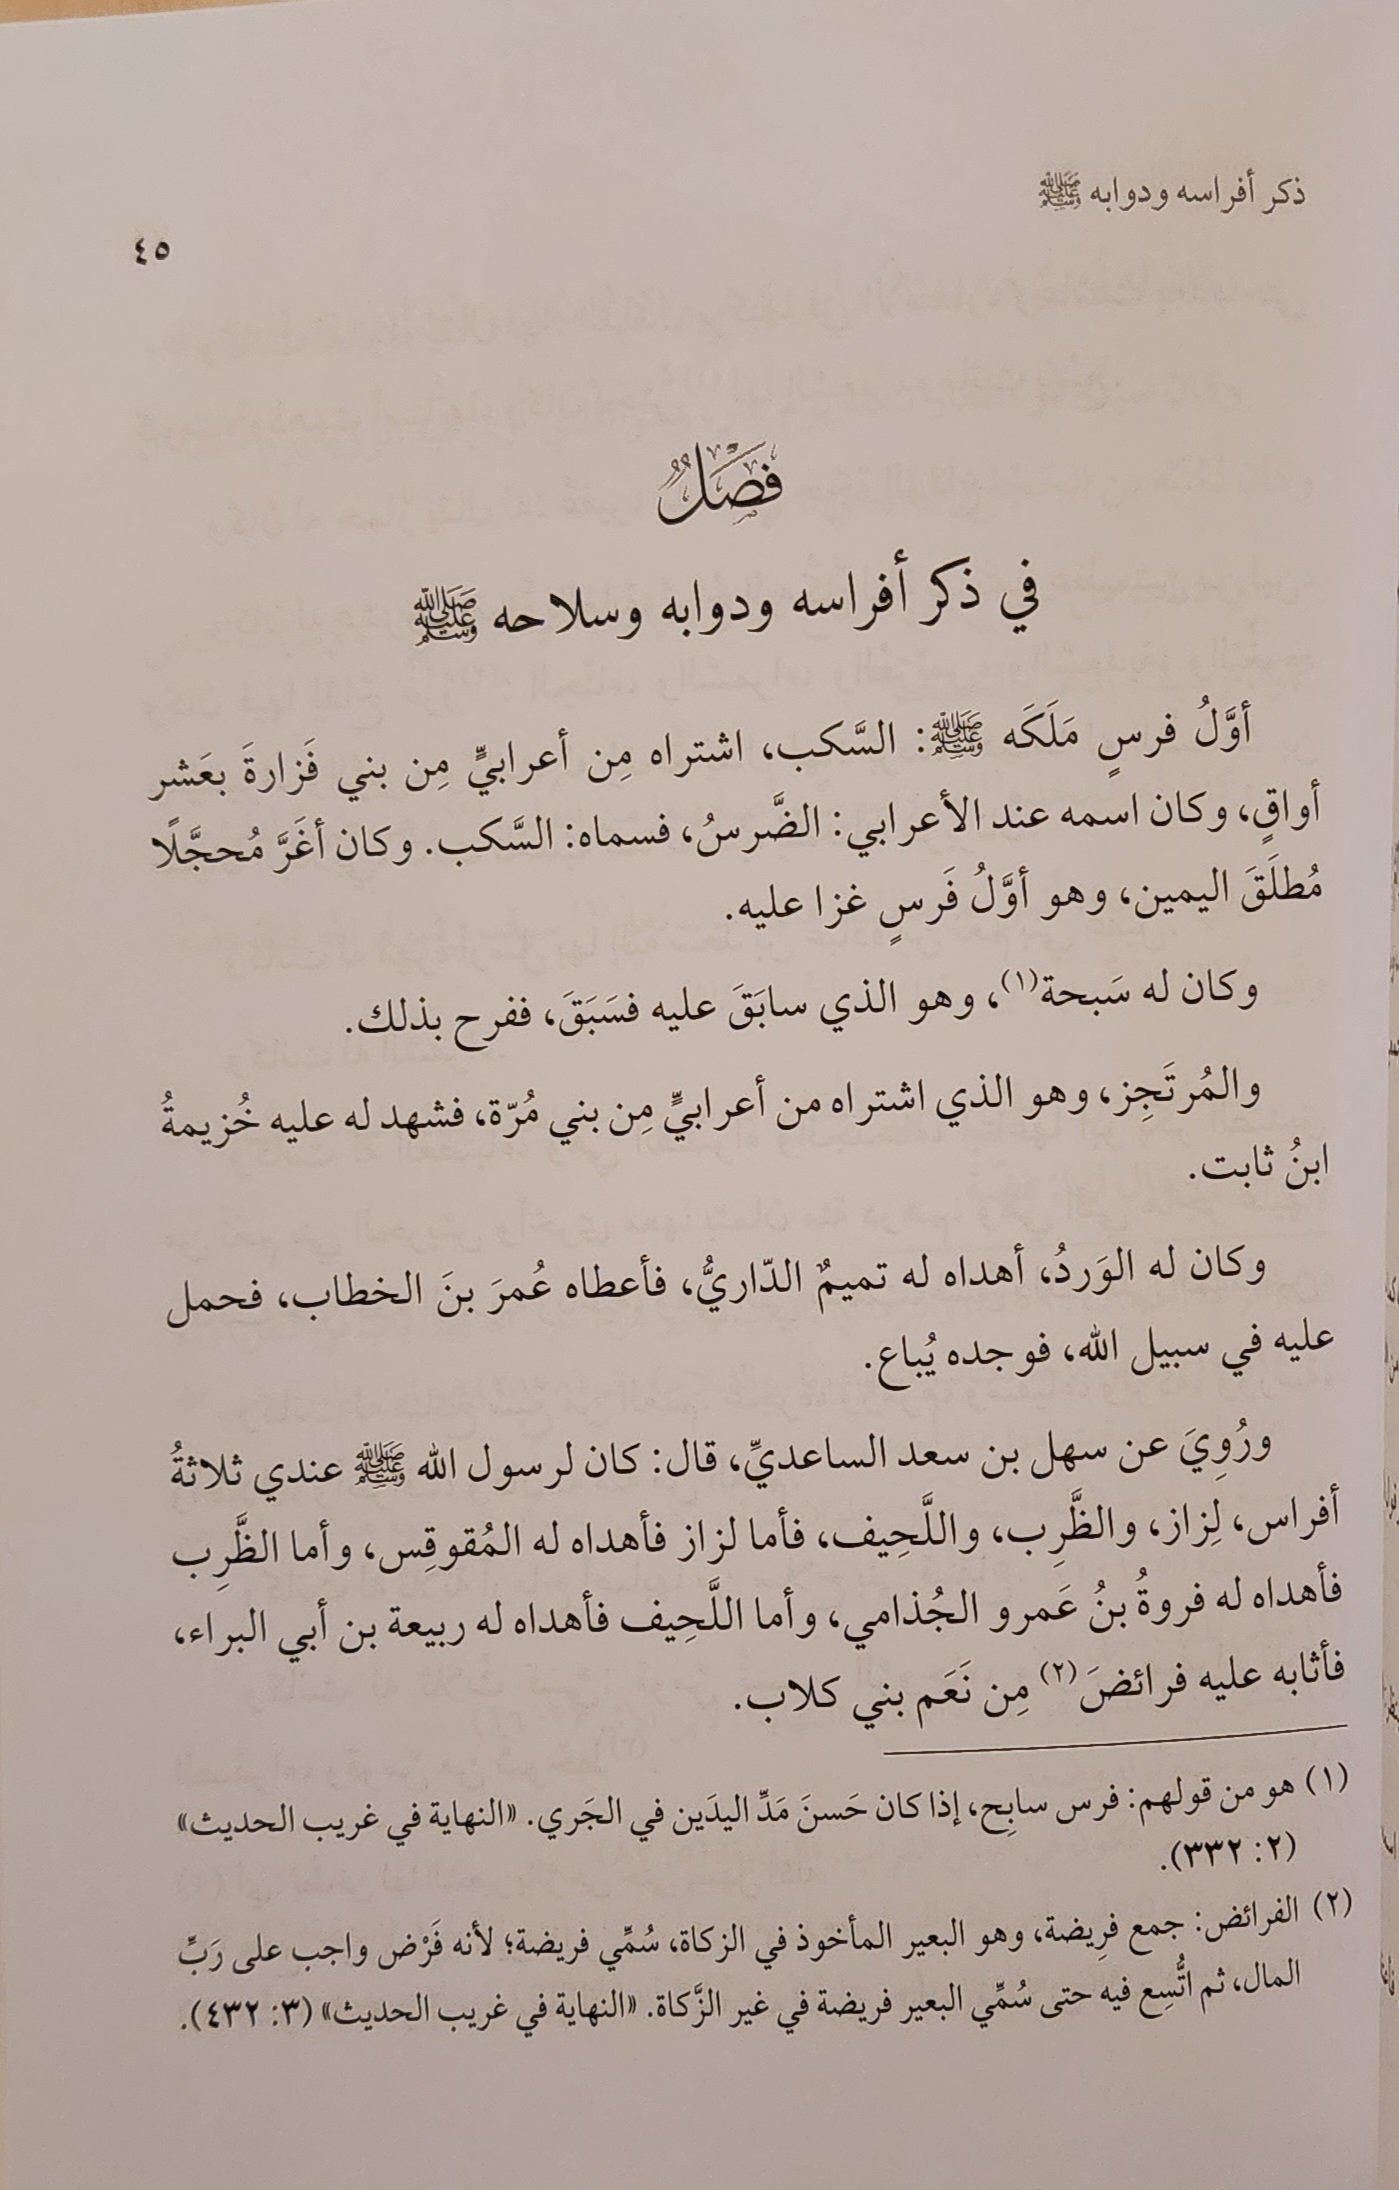 ذكر أفراسه ودوابه ﷺ
٤٥
فَصْلٌ
في ذكر أفراسه ودوابه وسلاحه ﷺ
أوَّلُ فرسٍ مَلَكَه ﷺ: السَّكب، اشتراه مِن أعرابيٍّ مِن بني فَزارةَ بعَشر
أواقٍ، وكان اسمه عند الأعرابي: الضَّرسُ، فسماه: السَّكب. وكان أغَرَّ مُحجَّلًا
مُطلَقَ اليمين، وهو أوَّلُ فَرسٍ غزا عليه.
وكان له سَبحة(١)، وهو الذي سابَقَ عليه فسَبَقَ، ففرح بذلك.
والمُرتَجِز، وهو الذي اشتراه من أعرابيٍّ مِن بني مُرّة، فشهد له عليه خُزيمةُ
ابنُ ثابت.
وكان له الوَردُ، أهداه له تميمٌ الدّاريُّ، فأعطاه عُمرَ بنَ الخطاب، فحمل
عليه في سبيل الله، فوجده يُباع.
ورُوِيَ عن سهل بن سعد الساعديِّ، قال: كان لرسول الله ﷺ عندي ثلاثةُ
أفراس، لِزاز، والظَّرِب، واللَّحِيف، فأما لزاز فأهداه له المُقوقِس، وأما الظَّرِب
فأهداه له فروةُ بنُ عَمرو الجُذامي، وأما اللَّحِيف فأهداه له ربيعة بن أبي البراء،
فأثابه عليه فرائضَ(٢) مِن نَعَم بني كلاب.
(١) هو من قولهم: فرس سابِح، إذا كان حَسنَ مَدِّ اليدَين في الجَري. «النهاية في غريب الحديث»
(٢: ٣٣٢).
(٢) الفرائض: جمع فرِيضة، وهو البعير المأخوذ في الزكاة، سُمِّي فريضة؛ لأنه فَرْض واجب على رَبِّ
المال، ثم اتُّسِع فيه حتى سُمِّي البعير فريضة في غير الزَّكاة. «النهاية في غريب الحديث» (٣: ٤٣٢).